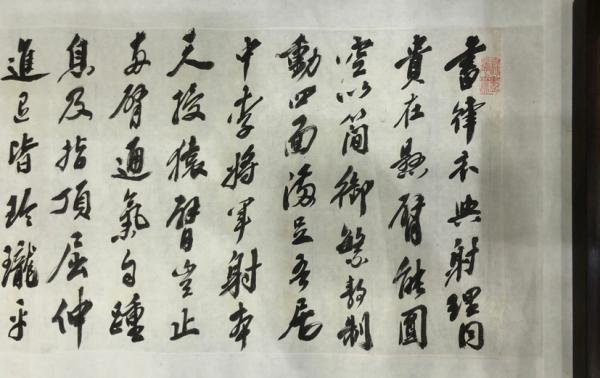 書律本與射理同
貴在懸臂能圓
空以簡御繁靜制
動四面滿足吾居
中李將軍射本
天授猿臂豈止
兩臂通氣自踵
息及指頂屈伸
進退皆玲瓏平